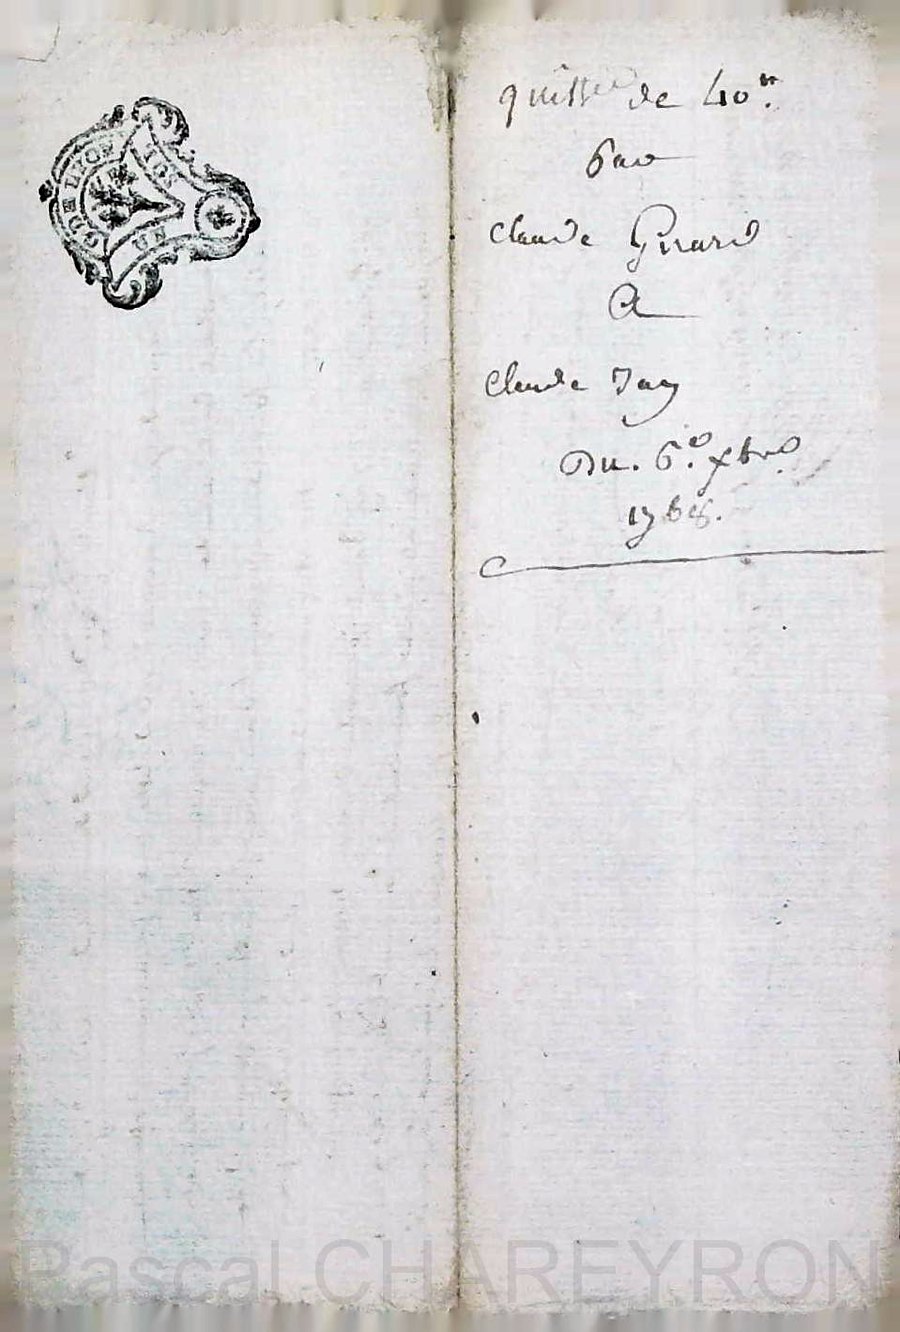 G DE LYON
quitt.ce de 40.tt
par
Claude Girard
A
Claude Jay
Du. 6.e xbre
1768.
Pascal CHAREYRON